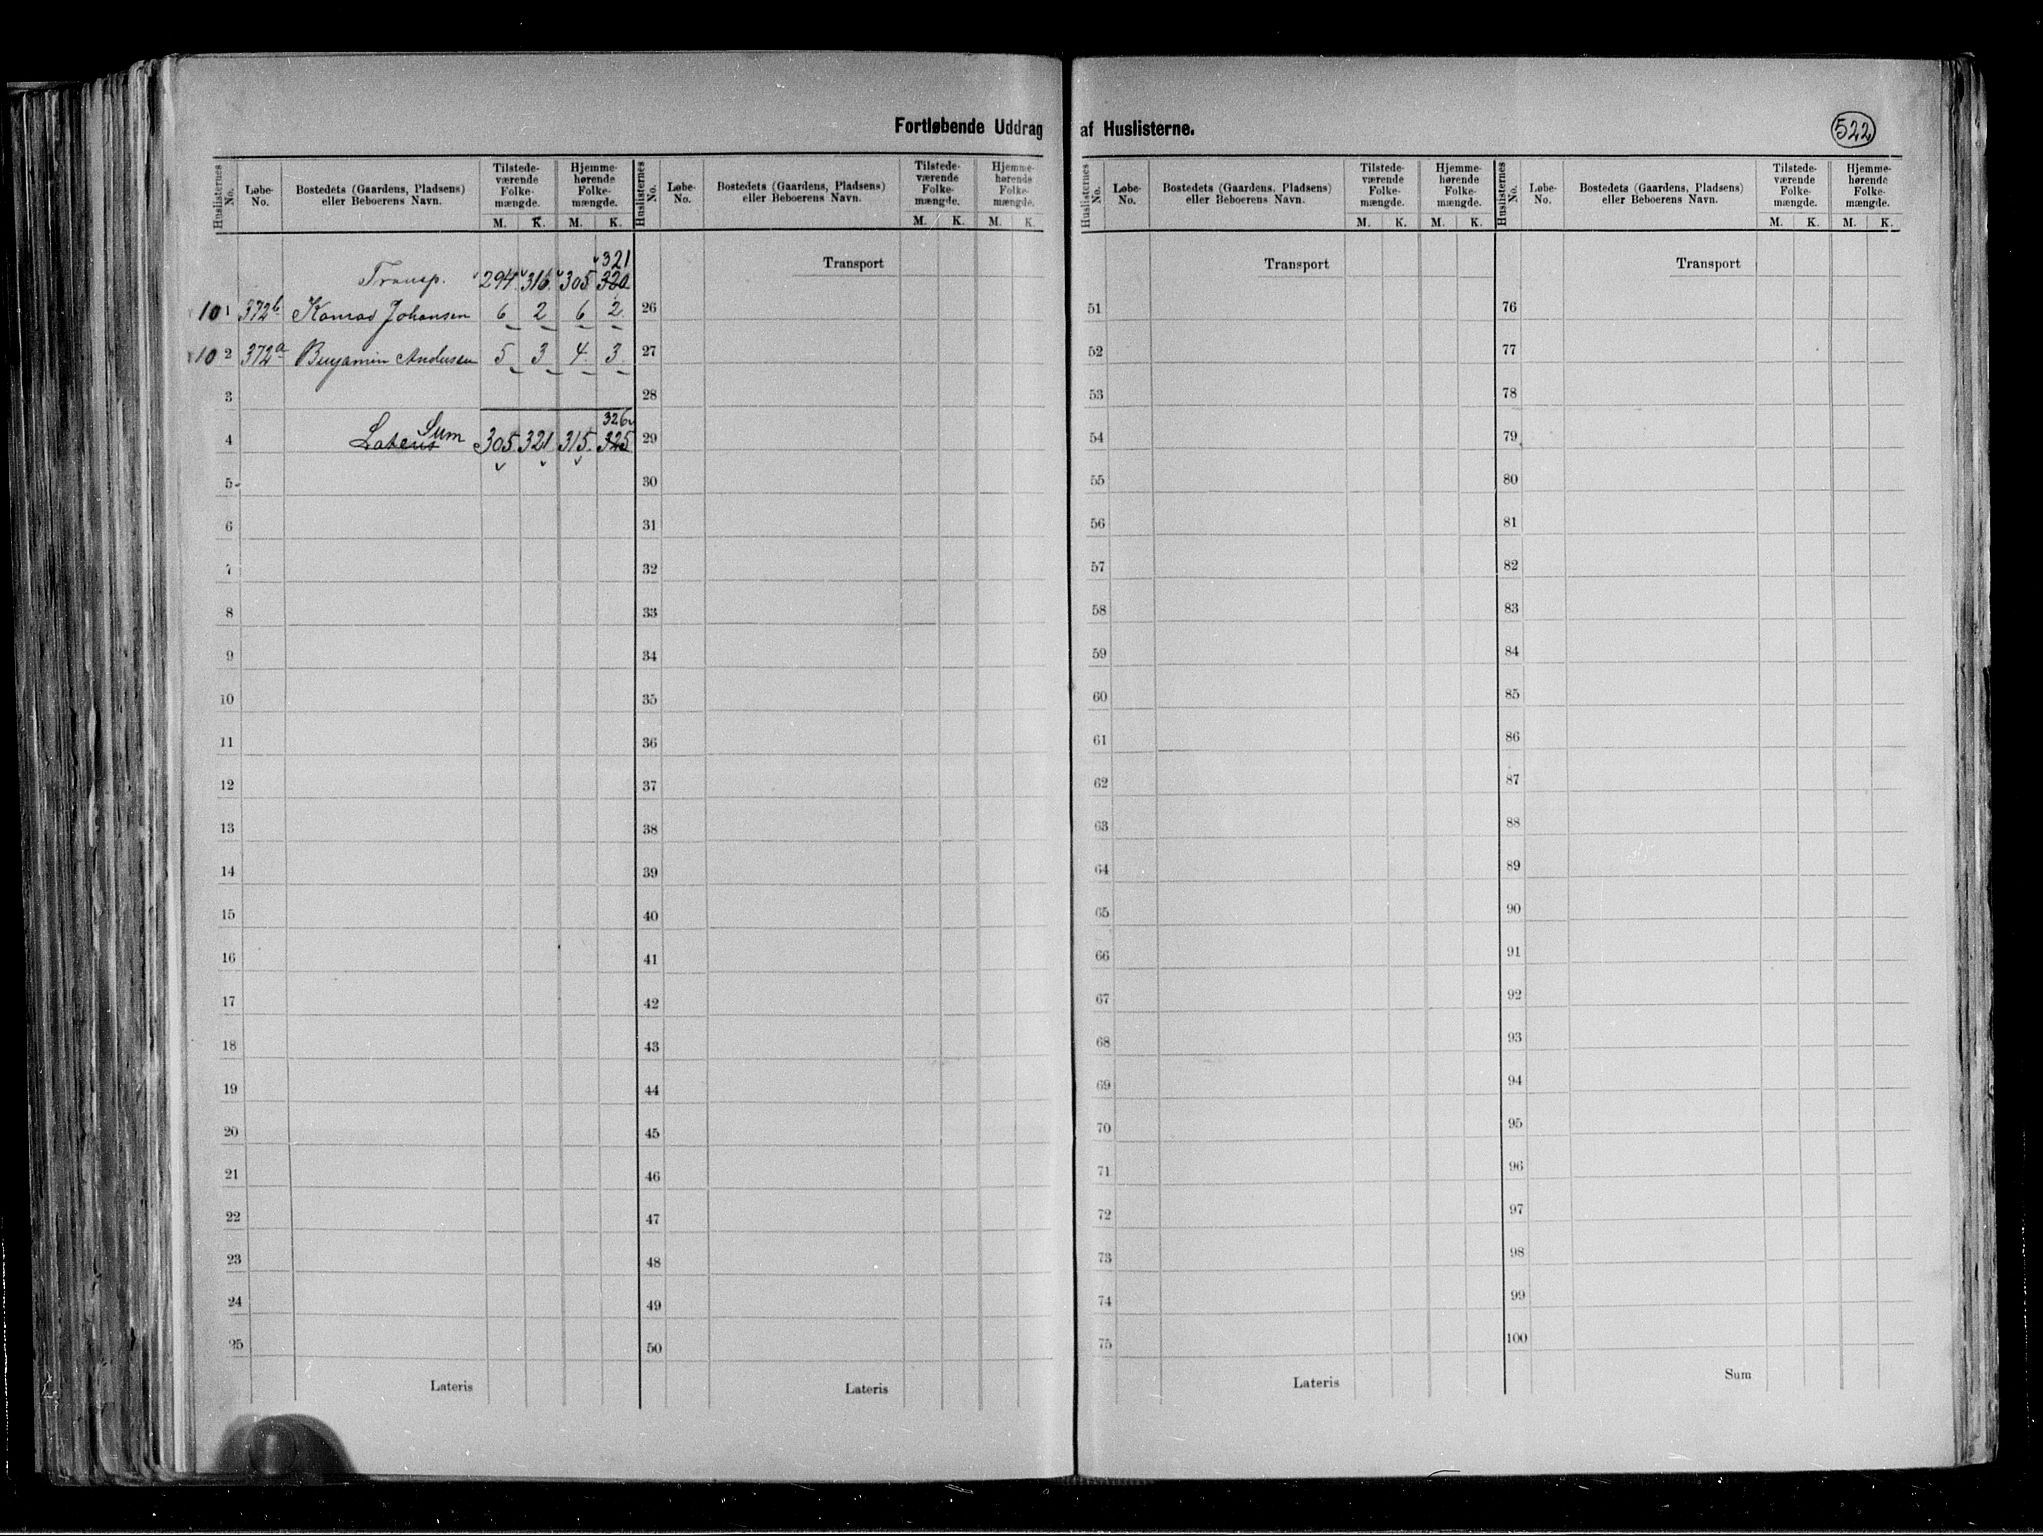 Fortløbende Uddrag af Huslisterne.
522
Huslisternes No. Løbe-No. Bostedets (Gaardens, Pladsens) eller Beboerens Navn. Tilstede-værende Folke-mængde. M. K. Hjemme-hørende Folke-mængde. M. K.
Transp. 294 316 305 320 321
101 372b Konrad Johansen 6 2 6 2
102 372a Benjamin Andersen 5 3 4 3
3
4 Lateris Sum 305 321 315 325 326
5
6
7
8
9
10
11
12
13
14
15
16
17
18
19
20
21
22
23
24
25
Lateris
Huslisternes No. Løbe-No. Bostedets (Gaardens, Pladsens) eller Beboerens Navn. Tilstede-værende Folke-mængde. M. K. Hjemme-hørende Folke-mængde. M. K.
Transport
26
27
28
29
30
31
32
33
34
35
36
37
38
39
40
41
42
43
44
45
46
47
48
49
50
Lateris
Huslisternes No. Løbe-No. Bostedets (Gaardens, Pladsens) eller Beboerens Navn. Tilstede-værende Folke-mængde. M. K. Hjemme-hørende Folke-mængde. M. K.
Transport
51
52
53
54
55
56
57
58
59
60
61
62
63
64
65
66
67
68
69
70
71
72
73
74
75
Lateris
Huslisternes No. Løbe-No. Bostedets (Gaardens, Pladsens) eller Beboerens Navn. Tilstede-værende Folke-mængde. M. K. Hjemme-hørende Folke-mængde. M. K.
Transport
76
77
78
79
80
81
82
83
84
85
86
87
88
89
90
91
92
93
94
95
96
97
98
99
100
Sum